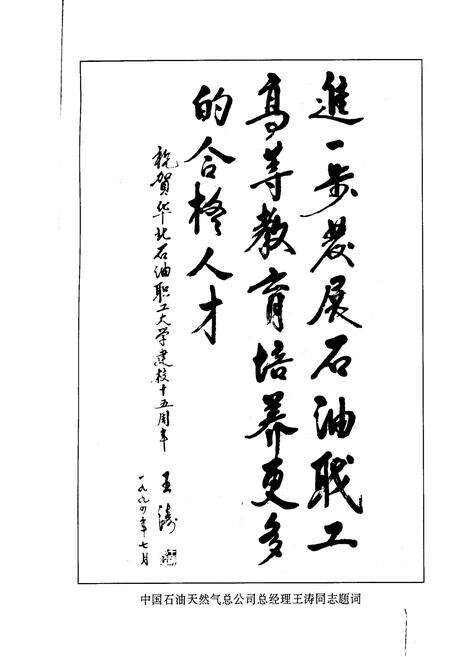 進一步发展石油职工
高等教育培养更多
的合格人才
祝賀华北石油职工大学建校十五周年
王涛
一九九四年七月
中国石油天然气总公司总经理王涛同志题词